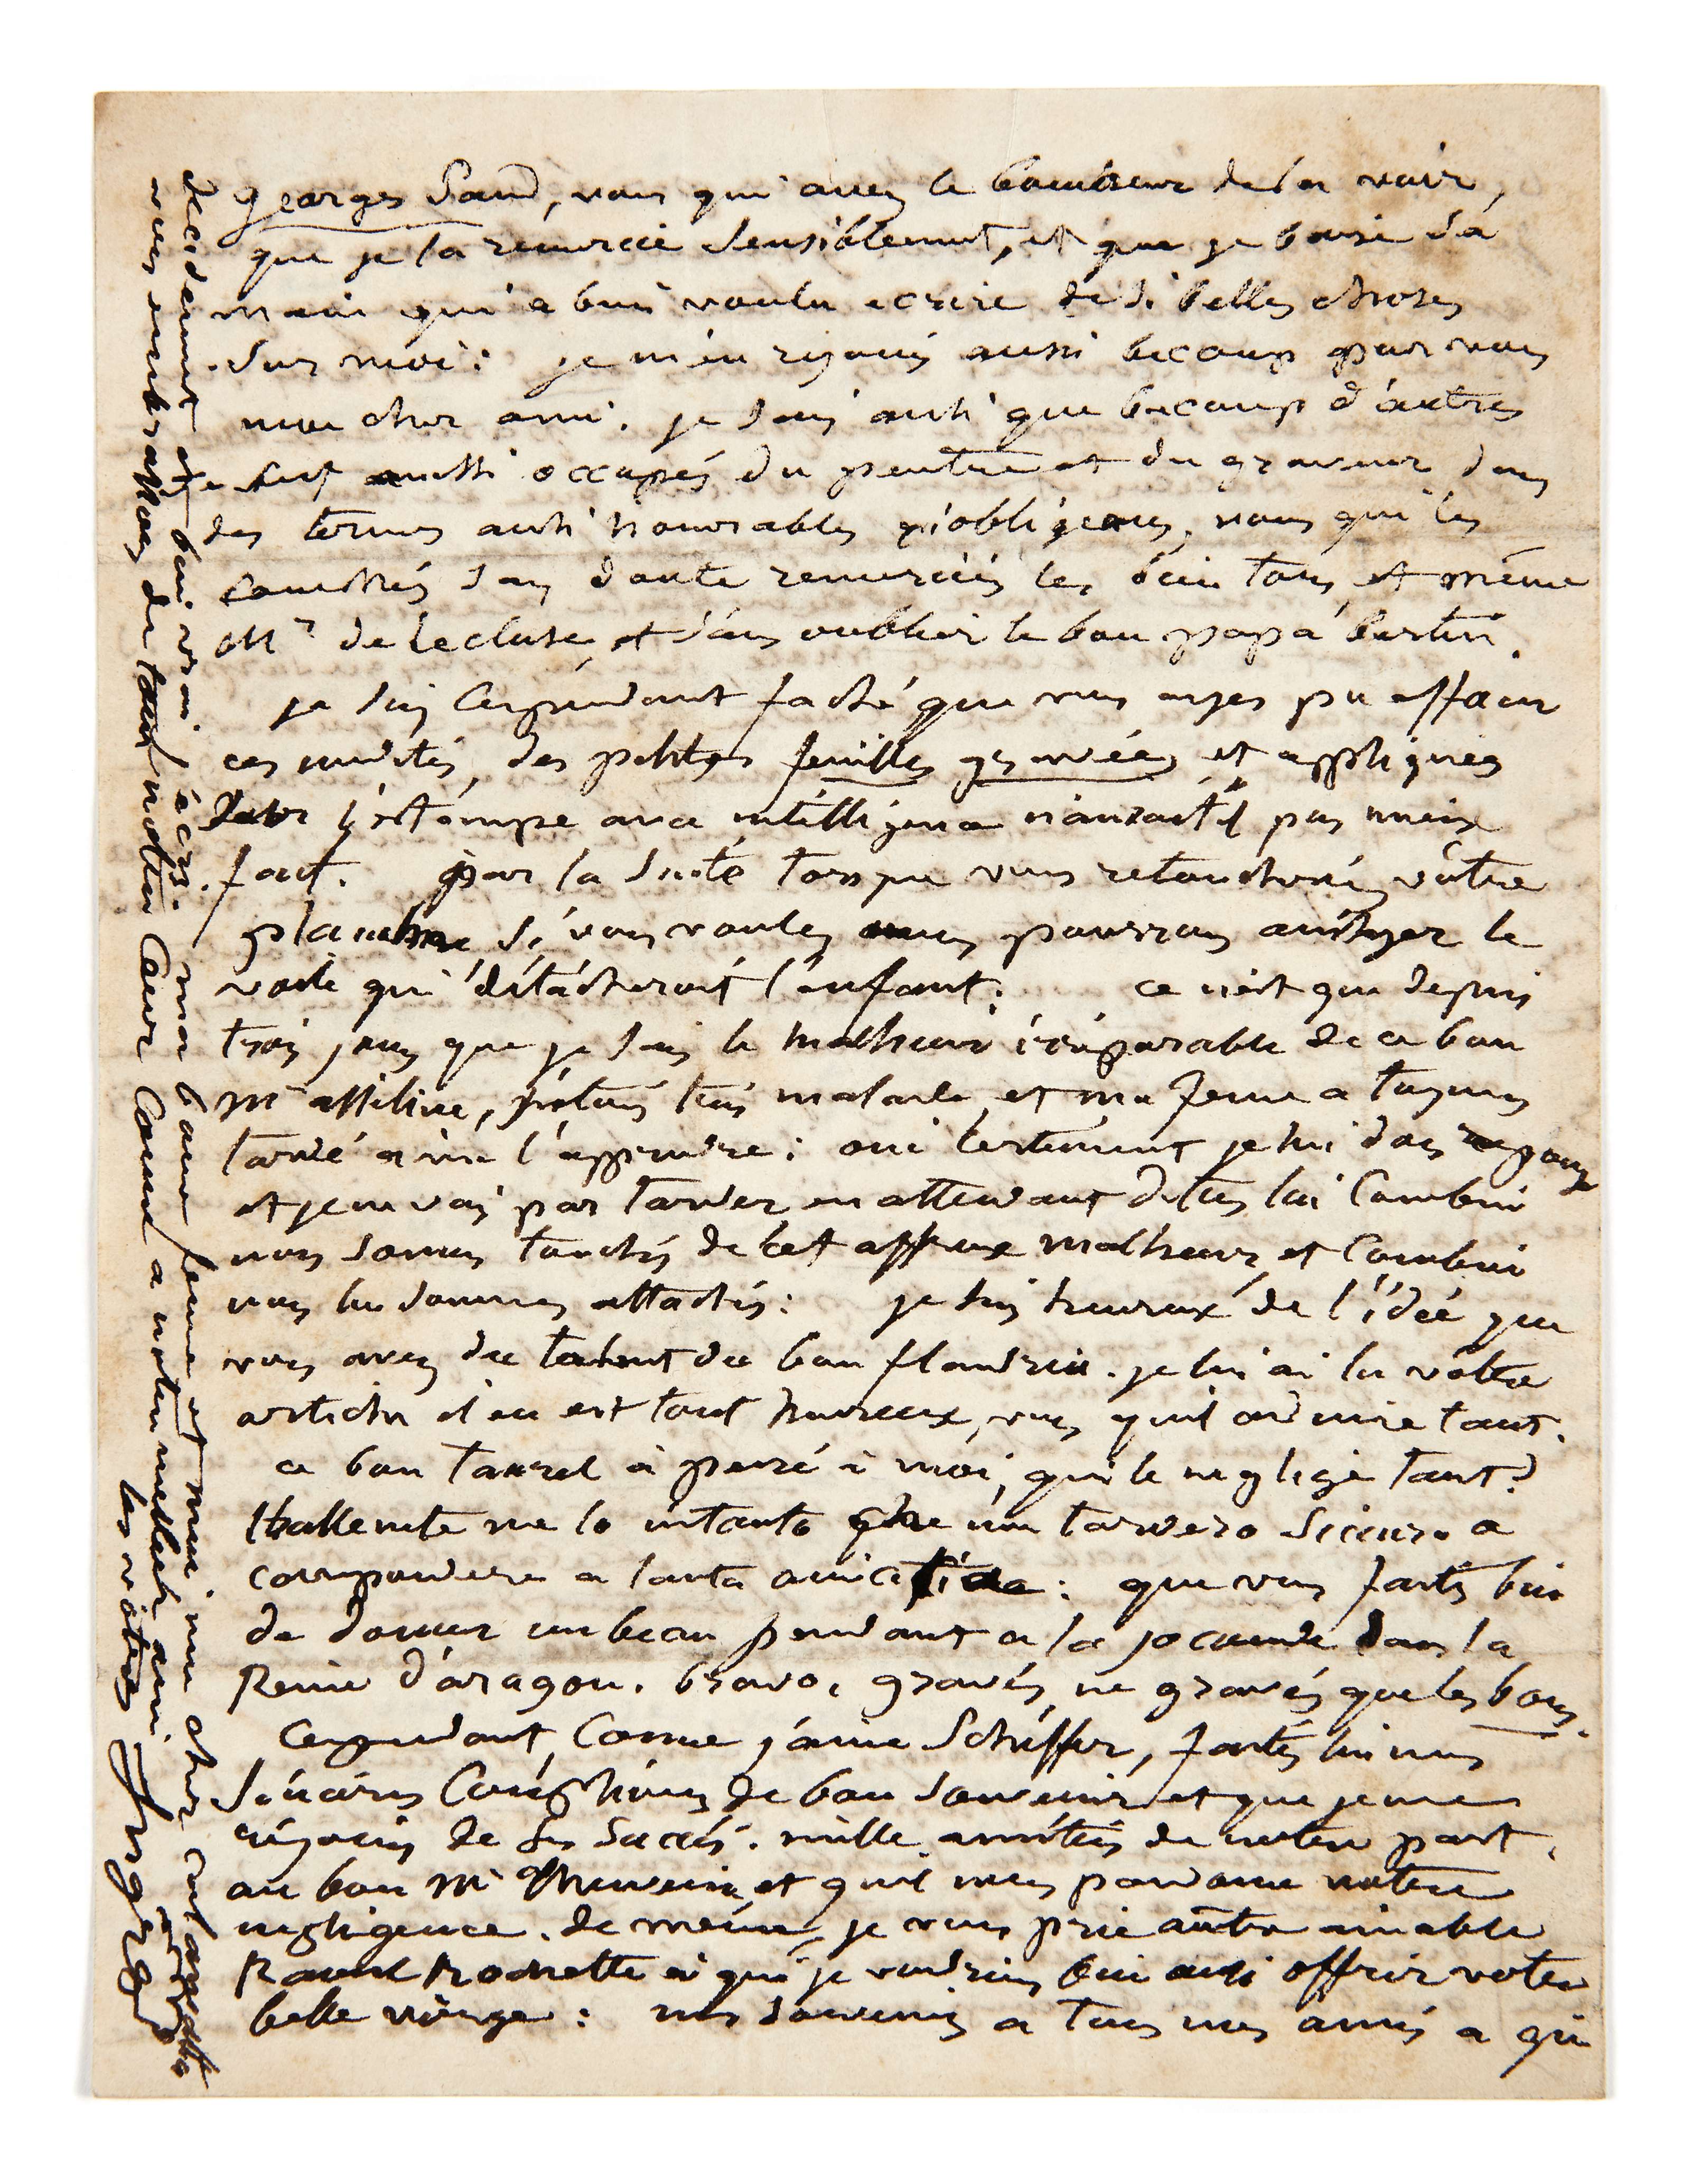 georges Sand, vous qui avez le bonheur de la voir,
que je la remercie sensiblement, et que je baise sa
main qui a bien voulu ecrire de si belles choses
sur moi: je m'en rejouis aussi becoup pour vous
mon cher ami. je sais aussi que becoup d'autres
se sont aussi occupés du peintre et du graveur dans
des termes aussi honorables obligeans, vous qui les
connoissés sans doute remerciés les bien tous et même
Mr de lecluse et sans oublier le bon papa bertin.
je suis cependant faché que vous ayes pu effacer
ces nudités, des petites feuilles gravées et appliqués
sur l'estampe avec intelligence n'auroit il pas mieux
fait. par la suite lorsque vous retoucherés vôtre
planche si vous voulez nous pourrons arranger le
voile qui détacheroit l'enfant: ce n'est que depuis
trois jours que je sais le malheur irréparable de ce bon
mr atteline, j'etais très malade et ma feme a toujours
tardé a me l'apprendre: oui certainement je lui dois
et je ne vais pas tarder en attendant dites lui Combien
nous somes touchés de cet affreux malheur et Combien
nous lui sommes attachés: je suis heureux de l'idée que
vous avez du talent du bon flandrin. je lui ai lu vôtre
article il en est tout heureux, vous qu'il admire tant.
ce bon taurel a pensé à moi, qui le neglige tant?
ditte me lo intanto che non tardero sicuro a
correspondere a tanta amicitia: que vous faites bien
de donner un beau pendant a la joconde dans la
Reine d'aragon. bravo, gravés, ne gravés que les bons.
Cependant, Come j'aime Scheffer, faites lui mes
sincères Compliments de bon souvenir et que je me
réjouis de ses succès. mille amitiés de notre part
au bon mr thevenin et qu'il nous pardonne notre
negligence. de même, je vous prie autre aimable
Raoul Rochette à qui je voudrais bien aussi offrir votre
belle vierge: nos souvenirs a tous nos amis a qui
decidement et bien vrai j'écris. ma bone feme et moi, mon cher Calamatta
nous vous embrassons de tout notre Cœur Comme a notre meilleur ami
les vôtres Ingres